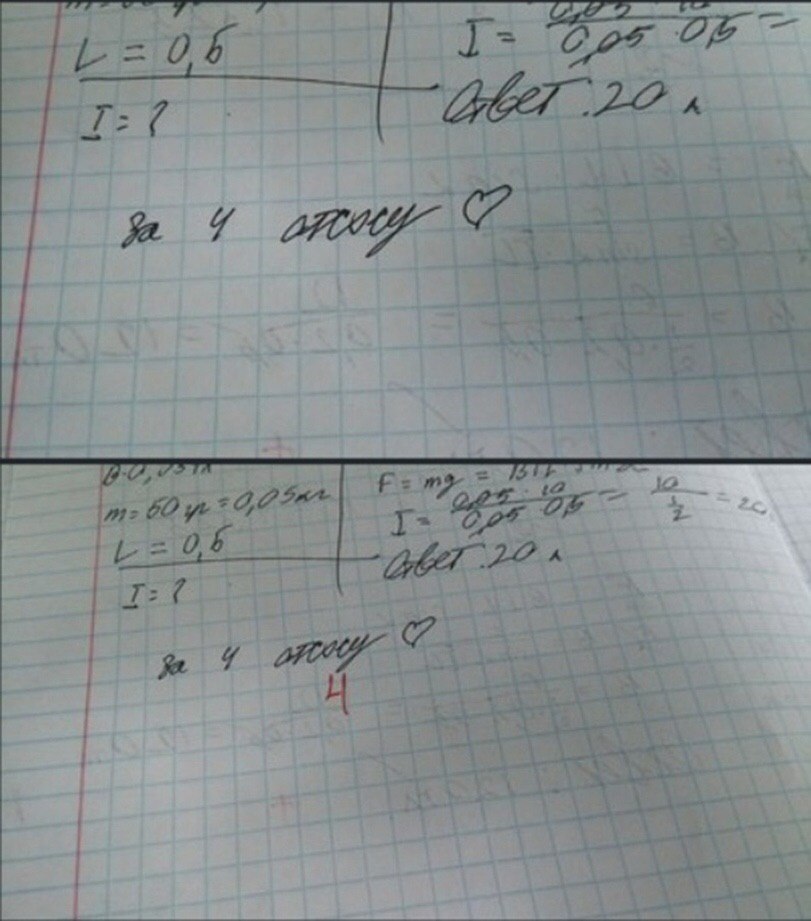 L = 0,5
I = ?
I = 0,05 · 10 / 0,05 · 0,5 =
Ответ: 20 А
За 4 отсосу ♡
m = 50 гр = 0,05 кг
L = 0,5
I = ?
F = mg =
I = 0,05 · 10 / 0,05 · 0,5 = 10 / 1/2 = 20
Ответ: 20 А
За 4 отсосу ♡
4